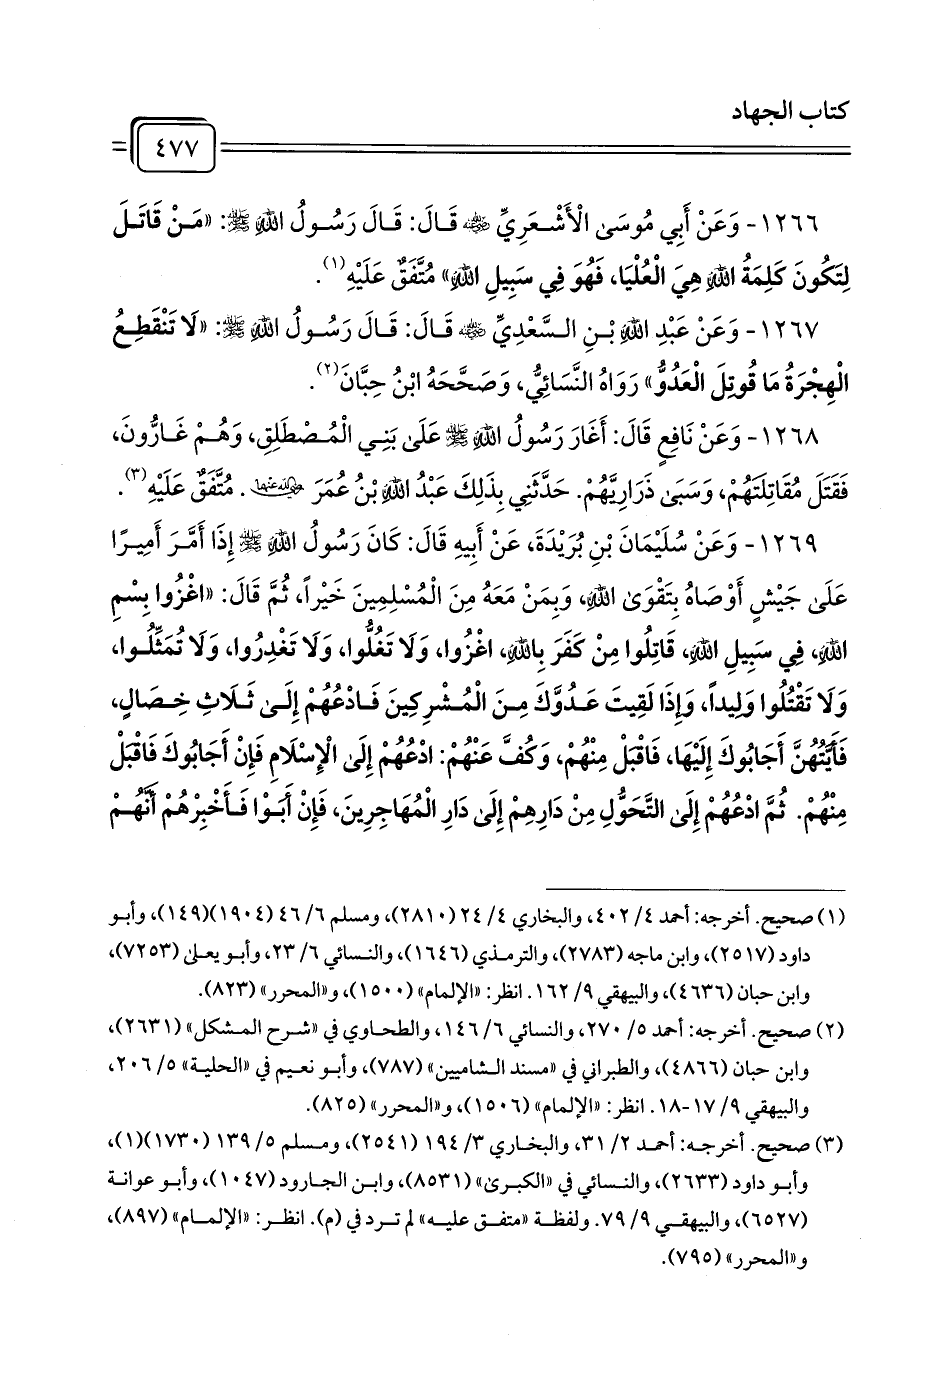 كتاب الجهاد
٤٧٧
١٢٦٦- وَعَنْ أَبِي مُوسَى الْأَشْعَرِيِّ ﵁ قَالَ: قَالَ رَسُولُ اللهِ ﷺ: «مَنْ قَاتَلَ
لِتَكُونَ كَلِمَةُ اللهِ هِيَ الْعُلْيَا، فَهُوَ فِي سَبِيلِ اللهِ» مُتَّفَقٌ عَلَيْهِ(١).
١٢٦٧- وَعَنْ عَبْدِ اللهِ بْنِ السَّعْدِيِّ ﵁ قَالَ: قَالَ رَسُولُ اللهِ ﷺ: «لَا تَنْقَطِعُ
الْهِجْرَةُ مَا قُوتِلَ الْعَدُوُّ» رَوَاهُ النَّسَائِيُّ، وَصَحَّحَهُ ابْنُ حِبَّانَ(٢).
١٢٦٨- وَعَنْ نَافِعٍ قَالَ: أَغَارَ رَسُولُ اللهِ ﷺ عَلَى بَنِي الْمُصْطَلِقِ، وَهُمْ غَارُّونَ،
فَقَتَلَ مُقَاتِلَتَهُمْ، وَسَبَى ذَرَارِيَّهُمْ. حَدَّثَنِي بِذَلِكَ عَبْدُ اللهِ بْنُ عُمَرَ ﵄. مُتَّفَقٌ عَلَيْهِ(٣).
١٢٦٩- وَعَنْ سُلَيْمَانَ بْنِ بُرَيْدَةَ، عَنْ أَبِيهِ قَالَ: كَانَ رَسُولُ اللهِ ﷺ إِذَا أَمَّرَ أَمِيرًا
عَلَى جَيْشٍ أَوْصَاهُ بِتَقْوَى اللهِ، وَبِمَنْ مَعَهُ مِنَ الْمُسْلِمِينَ خَيْراً، ثُمَّ قَالَ: «اغْزُوا بِسْمِ
اللهِ، فِي سَبِيلِ اللهِ، قَاتِلُوا مِنْ كَفَرَ بِاللهِ، اغْزُوا، وَلَا تَغُلُّوا، وَلَا تَغْدِرُوا، وَلَا تُمَثِّلُوا،
وَلَا تَقْتُلُوا وَلِيداً، وَإِذَا لَقِيتَ عَدُوَّكَ مِنَ الْمُشْرِكِينَ فَادْعُهُمْ إِلَى ثَلَاثِ خِصَالٍ،
فَأَيَّتُهُنَّ أَجَابُوكَ إِلَيْهَا، فَاقْبَلْ مِنْهُمْ، وَكُفَّ عَنْهُمْ: ادْعُهُمْ إِلَى الْإِسْلَامِ فَإِنْ أَجَابُوكَ فَاقْبَلْ
مِنْهُمْ. ثُمَّ ادْعُهُمْ إِلَى التَّحَوُّلِ مِنْ دَارِهِمْ إِلَى دَارِ الْمُهَاجِرِينَ، فَإِنْ أَبَوْا فَأَخْبِرْهُمْ أَنَّهُمْ
(١) صحيح. أخرجه: أحمد ٤/ ٤٠٢، والبخاري ٤/ ٢٤ (٢٨١٠)، ومسلم ٦/ ٤٦ (١٩٠٤)(١٤٩)، وأبو
داود (٢٥١٧)، وابن ماجه (٢٧٨٣)، والترمذي (١٦٤٦)، والنسائي ٦/ ٢٣، وأبو يعلى (٧٢٥٣)،
وابن حبان (٤٦٣٦)، والبيهقي ٩/ ١٦٢. انظر: «الإلمام» (١٥٠٠)، و«المحرر» (٨٢٣).
(٢) صحيح. أخرجه: أحمد ٥/ ٢٧٠، والنسائي ٦/ ١٤٦، والطحاوي في «شرح المشكل» (٢٦٣١)،
وابن حبان (٤٨٦٦)، والطبراني في «مسند الشاميين» (٧٨٧)، وأبو نعيم في «الحلية» ٥/ ٢٠٦،
والبيهقي ٩/ ١٧-١٨. انظر: «الإلمام» (١٥٠٦)، و«المحرر» (٨٢٥).
(٣) صحيح. أخرجه: أحمد ٢/ ٣١، والبخاري ٣/ ١٩٤ (٢٥٤١)، ومسلم ٥/ ١٣٩ (١٧٣٠)(١)،
وأبو داود (٢٦٣٣)، والنسائي في «الكبرى» (٨٥٣١)، وابن الجارود (١٠٤٧)، وأبو عوانة
(٦٥٢٧)، والبيهقي ٩/ ٧٩. ولفظة «متفق عليه» لم ترد في (م). انظر: «الإلمام» (٨٩٧)،
و«المحرر» (٧٩٥).